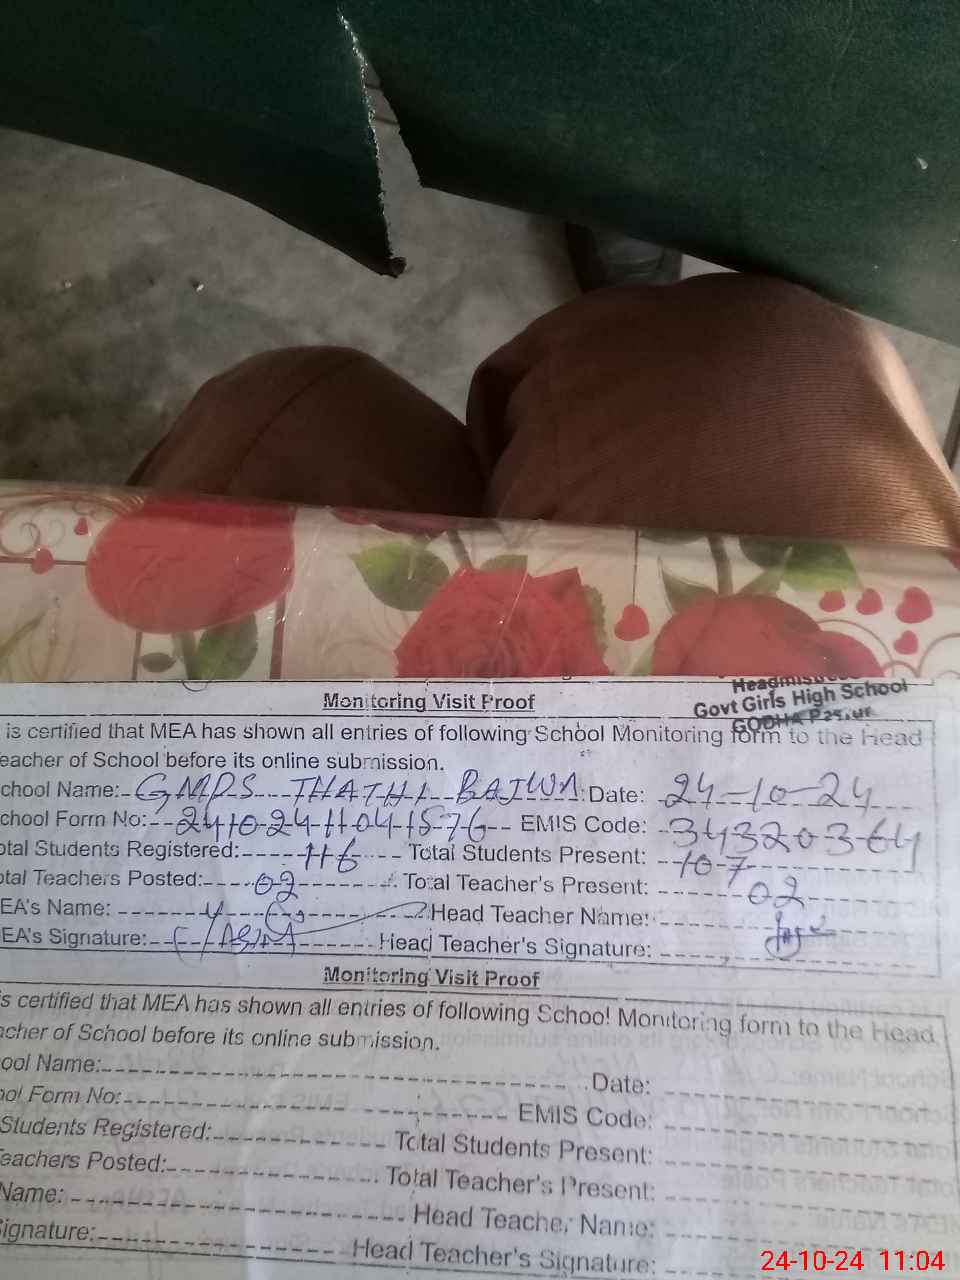 Headmistress
Govt Girls High School
GODHA Pasrur
Monitoring Visit Proof
is certified that MEA has shown all entries of following School Monitoring form to the Head
eacher of School before its online submission.
chool Name: GMPS THATHI BAJWA Date: 24-10-24
chool Form No: 241024-1104-1576 EMIS Code: 34320364
otal Students Registered: 116 Total Students Present: 107
otal Teachers Posted: 02 Total Teacher's Present: 02
EA's Name: Head Teacher Name:
EA's Signature: Head Teacher's Signature:
Monitoring Visit Proof
is certified that MEA has shown all entries of following School Monitoring form to the Head
acher of School before its online submission.
ool Name: Date:
ool Form No: EMIS Code:
Students Registered: Total Students Present:
eachers Posted: Total Teacher's Present:
Name: Head Teacher Name:
Signature: Head Teacher's Signature:
24-10-24 11:04